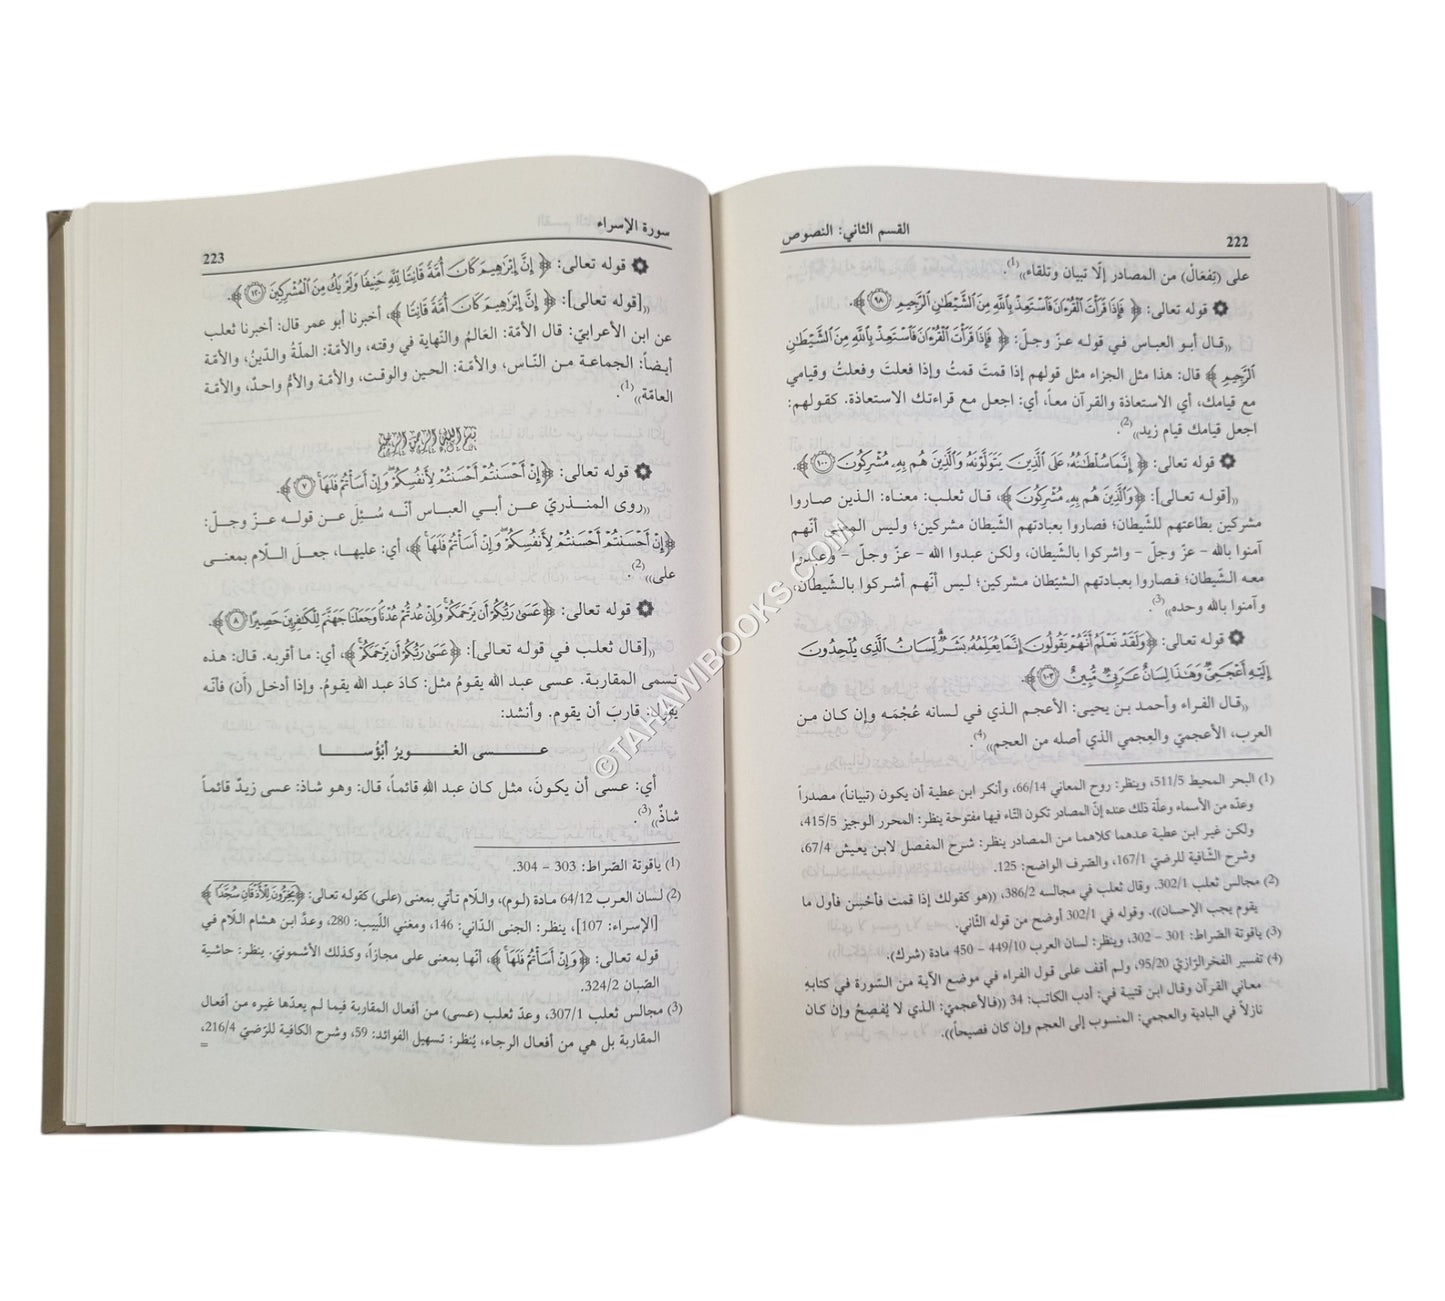 222
القسم الثاني: النصوص
على (تِفعَال) من المصادر إلّا تبيان وتلقاء»(1).
قوله تعالى: ﴿ فَإِذَا قَرَأْتَ الْقُرْءَانَ فَاسْتَعِذْ بِاللَّهِ مِنَ الشَّيْطَانِ الرَّجِيمِ ٩٨ ﴾.
«قال أبو العباس في قوله عزّ وجلّ: ﴿ فَإِذَا قَرَأْتَ الْقُرْءَانَ فَاسْتَعِذْ بِاللَّهِ مِنَ الشَّيْطَانِ
الرَّجِيمِ ﴾ قال: هذا مثل الجزاء مثل قولهم إذا قمتَ قمتُ وإذا فعلتَ وفعلتُ وقيامي
مع قيامك، أي الاستعاذة والقرآن معاً، أي: اجعل مع قراءتك الاستعاذة. كقولهم:
اجعل قيامك قيام زيد»(2).
قوله تعالى: ﴿ إِنَّمَا سُلْطَانُهُ عَلَى الَّذِينَ يَتَوَلَّوْنَهُ وَالَّذِينَ هُم بِهِ مُشْرِكُونَ ١٠٠ ﴾.
«[قوله تعالى]: ﴿وَالَّذِينَ هُم بِهِ مُشْرِكُونَ ﴾، قال ثعلب: معناه: الذين صاروا
مشركين بطاعتهم للشّيطان؛ فصاروا بعبادتهم الشّيطان مشركين؛ وليس المعنى أنّهم
آمنوا بالله – عزّ وجلّ – واشركوا بالشّيطان، ولكن عبدوا الله – عزّ وجلّ – وعبدوا
معه الشّيطان؛ فصاروا بعبادتهم الشيَطان مشركين؛ ليس أنّهم أشركوا بالشّيطان،
وآمنوا بالله وحده»(3).
قوله تعالى: ﴿وَلَقَدْ نَعْلَمُ أَنَّهُمْ يَقُولُونَ إِنَّمَا يُعَلِّمُهُ بَشَرٌ لِّسَانُ الَّذِي يُلْحِدُونَ
إِلَيْهِ أَعْجَمِيٌّ وَهَذَا لِسَانٌ عَرَبِيٌّ مُّبِينٌ ١٠٣ ﴾.
«قال الفراء وأحمد بن يحيى: الأعجم الذي في لسانه عُجْمَه وإن كان من
العرب، الأعجميّ والعِجمي الذي أصله من العجم»(4).
(1) البحر المحيط 511/5، وينظر: روح المعاني 66/14، وأنكر ابن عطية أن يكون (تبياناً) مصدراً
وعدّه من الأسماء وعلّة ذلك عنده إنّ المصادر تكون التّاء فيها مفتوحة ينظر: المحرر الوجيز 415/5،
ولكن غير ابن عطية عدهما كلاهما من المصادر ينظر: شرح المفصل لابن يعيش 67/4،
وشرح الشّافية للرضيّ 167/1، والصّرف الواضح: 125.
(2) مجالس ثعلب 302/1. وقال ثعلب في مجالسه 386/2، ((هو كقولك إذا قمت فأحْسِن فأول ما
يقوم يجب الإحسان)). وقوله في 302/1 أوضح من قوله الثّاني.
(3) ياقوتة الصّراط: 301 – 302، وينظر: لسان العرب 449/10 – 450 مادة (شرك).
(4) تفسير الفخرالرّازيّ 95/20، ولم أقف على قول الفراء في موضع الآية من السّورة في كتابهِ
معاني القرآن وقال ابن قتيبة في: أدب الكاتب: 34 ((فالأعجميّ: الذي لا يُفصِحُ وإن كان
نازلاً في البادية والعجمي: المنسوب إلى العجم وإن كان فصيحاً)).
سورة الإسراء
223
قوله تعالى: ﴿ إِنَّ إِبْرَاهِيمَ كَانَ أُمَّةً قَانِتًا لِّلَّهِ حَنِيفًا وَلَمْ يَكُ مِنَ الْمُشْرِكِينَ ١٢٠ ﴾.
«[قوله تعالى]: ﴿ إِنَّ إِبْرَاهِيمَ كَانَ أُمَّةً قَانِتًا ﴾، أخبرنا أبو عمر قال: أخبرنا ثعلب
عن ابن الأعرابيّ: قال الأمّة: العَالمُ والنّهاية في وقته، والأمّة: الملّةُ والدّينُ، والأمّة
أيضاً: الجماعة من النّاس، والأمّة: الحين والوقت، والأمّة والأمُّ واحدٌ، والأمّة
العامّة»(1).
بسم الله الرحمن الرحيم
قوله تعالى: ﴿إِنْ أَحْسَنتُمْ أَحْسَنتُمْ لِأَنفُسِكُمْ وَإِنْ أَسَأْتُمْ فَلَهَا ٧ ﴾.
«روى المنذريّ عن أبي العباس أنّه سُئِلَ عن قوله عزّ وجلّ:
﴿إِنْ أَحْسَنتُمْ أَحْسَنتُمْ لِأَنفُسِكُمْ وَإِنْ أَسَأْتُمْ فَلَهَا ﴾، أي: عليها، جعلَ اللّام بمعنى
على»(2).
قوله تعالى: ﴿عَسَى رَبُّكُمْ أَن يَرْحَمَكُمْ وَإِنْ عُدتُّمْ عُدْنَا وَجَعَلْنَا جَهَنَّمَ لِلْكَافِرِينَ حَصِيرًا ٨ ﴾.
«[قال ثعلب في قوله تعالى]: ﴿عَسَى رَبُّكُمْ أَن يَرْحَمَكُمْ ﴾، أي: ما أقربه. قال: هذه
تسمى المقاربة. عسى عبد الله يقومُ مثل: كادَ عبد الله يقومُ. وإذا أدخل (أن) فأنّه
يقول: قاربَ أن يقوم. وأنشد:
عـسـى الغـويرُ أبْؤُسـا
أي: عسى أن يكونَ، مثل كان عبد اللهِ قائماً، قال: وهو شاذ: عسى زيدٌ قائماً
شاذٌ»(3).
(1) ياقوتة الصّراط: 303 – 304.
(2) لسان العرب 64/12 مادة (لوم)، واللّام تأتي بمعنى (على) كقوله تعالى: ﴿يَخِرُّونَ لِلْأَذْقَانِ سُجَّدًا ﴾
[الإسراء: 107]، ينظر: الجنى الدّاني: 146، ومغني اللّبيب: 280، وعدَّ ابن هشام اللّام في
قوله تعالى: ﴿وَإِنْ أَسَأْتُمْ فَلَهَا ﴾، أنّها بمعنى على مجازاً، وكذلك الأشمونيّ. ينظر: حاشية
الصّبان 324/2.
(3) مجالس ثعلب 307/1، وعدّ ثعلب (عسى) من أفعال المقاربة فيما لم يعدّها غيره من أفعال
المقاربة بل هي من أفعال الرجاء، يُنظر: تسهيل الفوائد: 59، وشرح الكافية للرّضيّ 216/4،
=
©TAHAWIBOOKS.COM